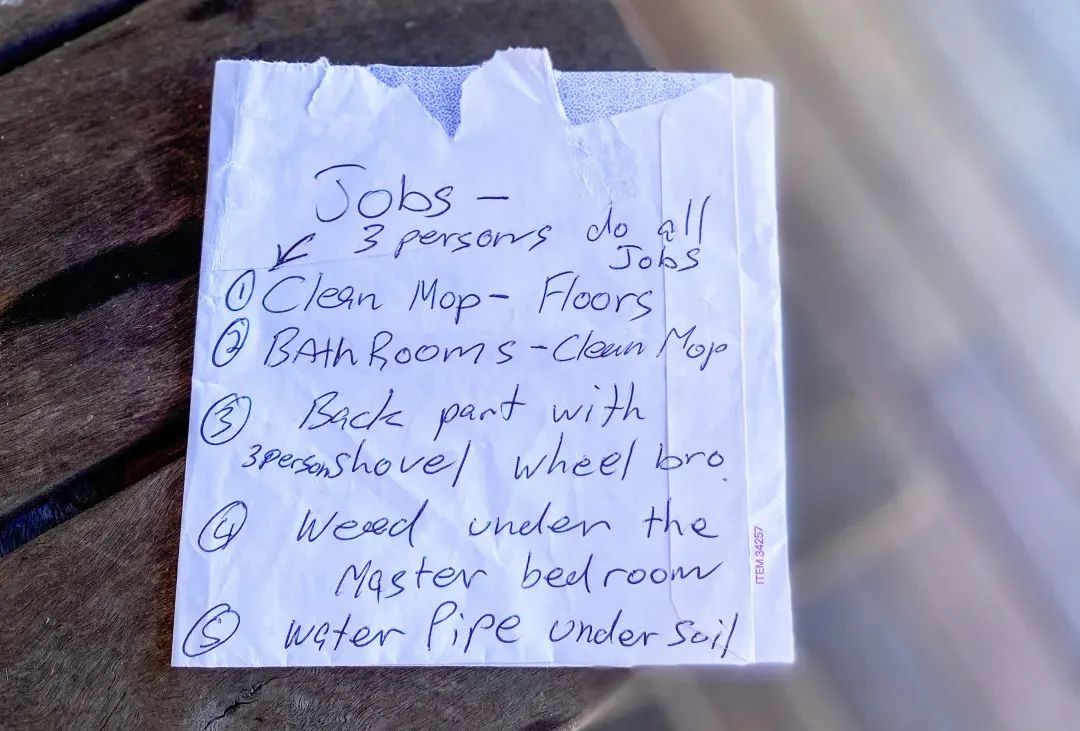 Jobs -
3 persons do all
Jobs
① Clean Mop - Floors
② BAthRooms - Clean Mop
③ Back part with
3 person shovel wheel bro.
④ Weed under the
Master bedroom
⑤ water Pipe under soil
ITEM 34257